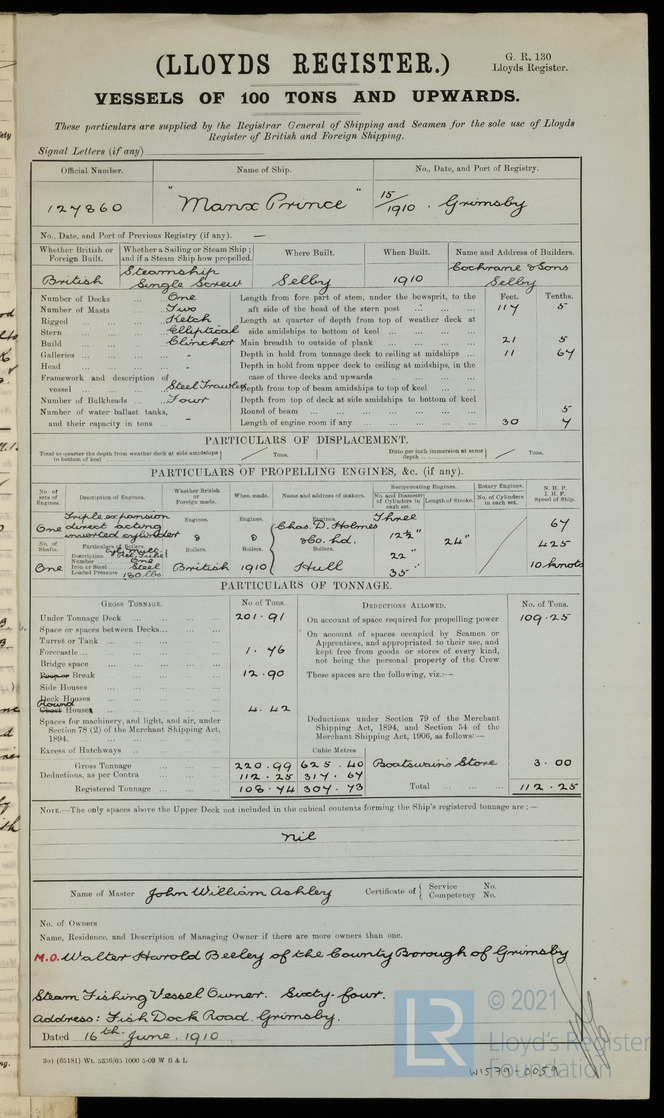 (LLOYDS REGISTER.)
G. R. 130
Lloyds Register.
VESSELS OF 100 TONS AND UPWARDS.
These particulars are supplied by the Registrar General of Shipping and Seamen for the sole use of Lloyds
Register of British and Foreign Shipping.
Signal Letters (if any)
Official Number. Name of Ship. No., Date, and Port of Registry.
127860 "Manx Prince" 15/1910. Grimsby
No., Date, and Port of Previous Registry (if any). —
Whether British or Foreign Built. Whether a Sailing or Steam Ship; and if a Steam Ship how propelled. Where Built. When Built. Name and Address of Builders.
British Steamship Single Screw Selby 1910 Cochrane & Sons Selby
Number of Decks ... One Length from fore part of stem, under the bowsprit, to the Feet. Tenths.
Number of Masts ... Two aft side of the head of the stern post ... 117 5
Rigged ... Ketch Length at quarter of depth from top of weather deck at
Stern ... Elliptical side amidships to bottom of keel ...
Build ... Clincher Main breadth to outside of plank ... 21 5
Galleries ... - Depth in hold from tonnage deck to ceiling at midships ... 11 67
Head ... - Depth in hold from upper deck to ceiling at midships, in the
Framework and description of case of three decks and upwards
vessel ... Steel Trawler Depth from top of beam amidships to top of keel ...
Number of Bulkheads ... Four Depth from top of deck at side amidships to bottom of keel
Number of water ballast tanks, Round of beam ... 5
and their capacity in tons ... - Length of engine room if any ... 30 4
PARTICULARS OF DISPLACEMENT.
Total to quarter the depth from weather deck at side amidships to bottom of keel Tons. Ditto per inch immersion at same depth Tons.
PARTICULARS OF PROPELLING ENGINES, &c. (if any).
No. of sets of Engines. Description of Engines. Whether British or Foreign made. When made. Name and address of makers. Reciprocating Engines. Rotary Engines. N. H. P.
No. and Diameter of Cylinders in each set. Length of Stroke. No. of Cylinders in each set. I. H. P. Speed of Ship.
One Triple expansion direct acting inverted cylinder Engines. Engines. Engines. Chas. D. Holmes Three 12½" 24" 67
& Co. Ld. 22" 425
No. of Shafts. Particulars of Boilers. Boilers. Boilers. Boilers.
Description
Number One
One Iron or Steel Steel British 1910 Hull 35" 10 knots
Loaded Pressure 180 lbs.
PARTICULARS OF TONNAGE.
GROSS TONNAGE. No of Tons. DEDUCTIONS ALLOWED. No. of Tons.
Under Tonnage Deck ... 201.91 On account of space required for propelling power 109.25
Space or spaces between Decks... On account of spaces occupied by Seamen or
Turret or Tank ... Apprentices, and appropriated to their use, and
Forecastle ... 1.76 kept free from goods or stores of every kind,
Bridge space not being the personal property of the Crew
Poop or Break ... 12.90 These spaces are the following, viz.:—
Side Houses
Deck Houses
Round
Chart Houses 4.42
Spaces for machinery, and light, and air, under Deductions under Section 79 of the Merchant
Section 78 (2) of the Merchant Shipping Act, Shipping Act, 1894, and Section 54 of the
1894. Merchant Shipping Act, 1906, as follows:—
Excess of Hatchways ... Cubic Metres
Gross Tonnage 220.99 625.40 Boatswain's Store 3.00
Deductions, as per Contra 112.25 317.67
Registered Tonnage 108.74 307.73 Total ... 112.25
NOTE.—The only spaces above the Upper Deck not included in the cubical contents forming the Ship's registered tonnage are:—
nil
Name of Master John William Ashley Certificate of { Service No. Competency No.
No. of Owners
Name, Residence, and Description of Managing Owner if there are more owners than one.
M.O. Walter Harold Beeley of the County Borough of Grimsby
Steam Fishing Vessel Owner. Sixty-four.
Address: Fish Dock Road, Grimsby.
Dated 16th. June. 1910
3o1 (65181) Wt. 5356/65 1000 5-09 W B & L
LR
© 2021
Lloyd's Register
Foundation
W1579-0059